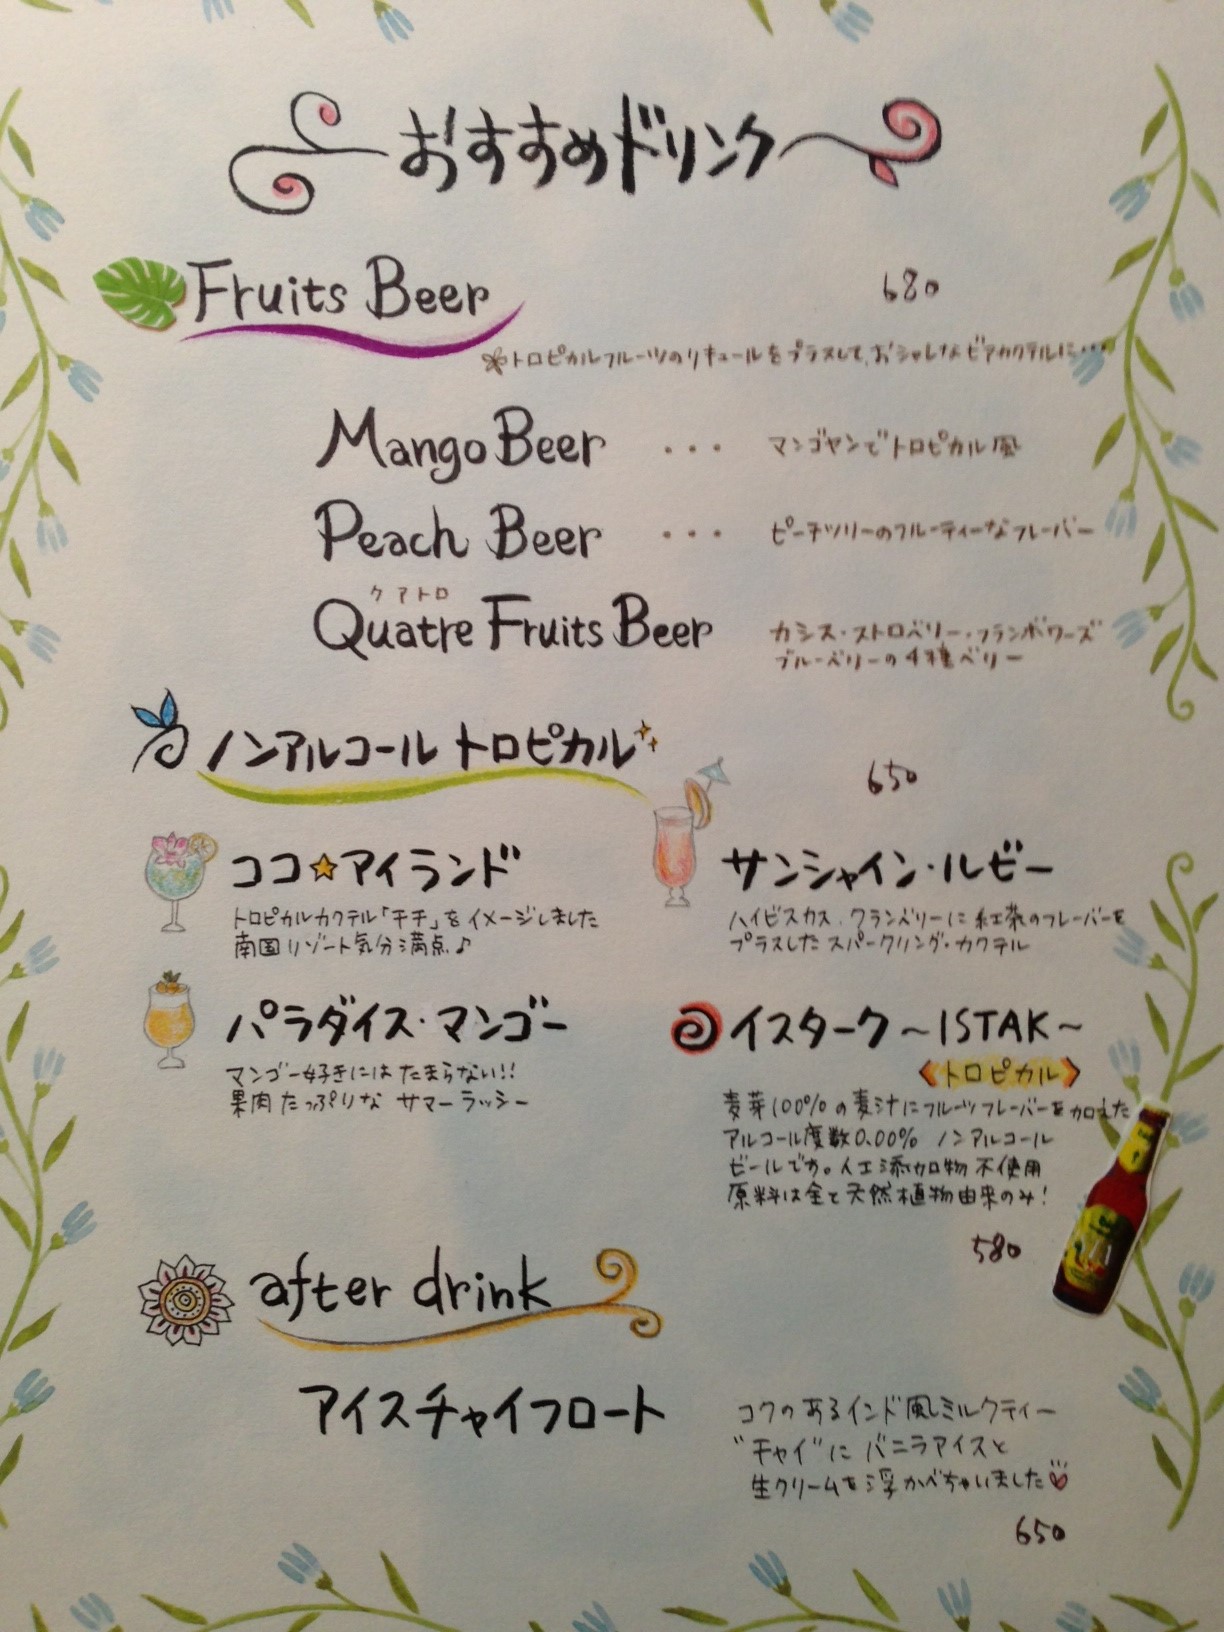 おすすめドリンク
Fruits Beer 680
トロピカルフルーツのリキュールをプラスして、おシャレなビアカクテルに…
Mango Beer ・・・ マンゴヤンでトロピカル風
Peach Beer ・・・ ピーチツリーのフルーティーなフレーバー
クアトロ
Quatre Fruits Beer カシス・ストロベリー・フランボワーズ
ブルーベリーの4種ベリー
ノンアルコール トロピカル
650
ココ★アイランド
トロピカルカクテル「チチ」をイメージしました
南国リゾート気分満点♪
サンシャイン・ルビー
ハイビスカス、クランベリーに紅茶のフレーバーを
プラスしたスパークリング・カクテル
パラダイス・マンゴー
マンゴー好きにはたまらない!!
果肉たっぷりな サマーラッシー
イスターク～ISTAK～
《トロピカル》
麦芽100%の麦汁にフルーツフレーバーを加えた
アルコール度数0.00% ノンアルコール
ビールです。人工添加物不使用
原料は全て天然植物由来のみ!
580
after drink
アイスチャイフロート
コクのあるインド風ミルクティー
"チャイ"に バニラアイスと
生クリームを浮かべちゃいました♡
650